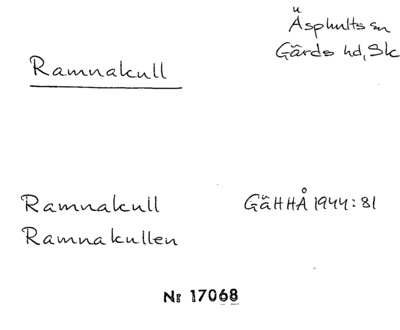 Äsphults sn
Gärds hd, Sk
Ramnakull
Ramnakull GäHHÅ 1944:81
Ramnakullen
Nr 17068